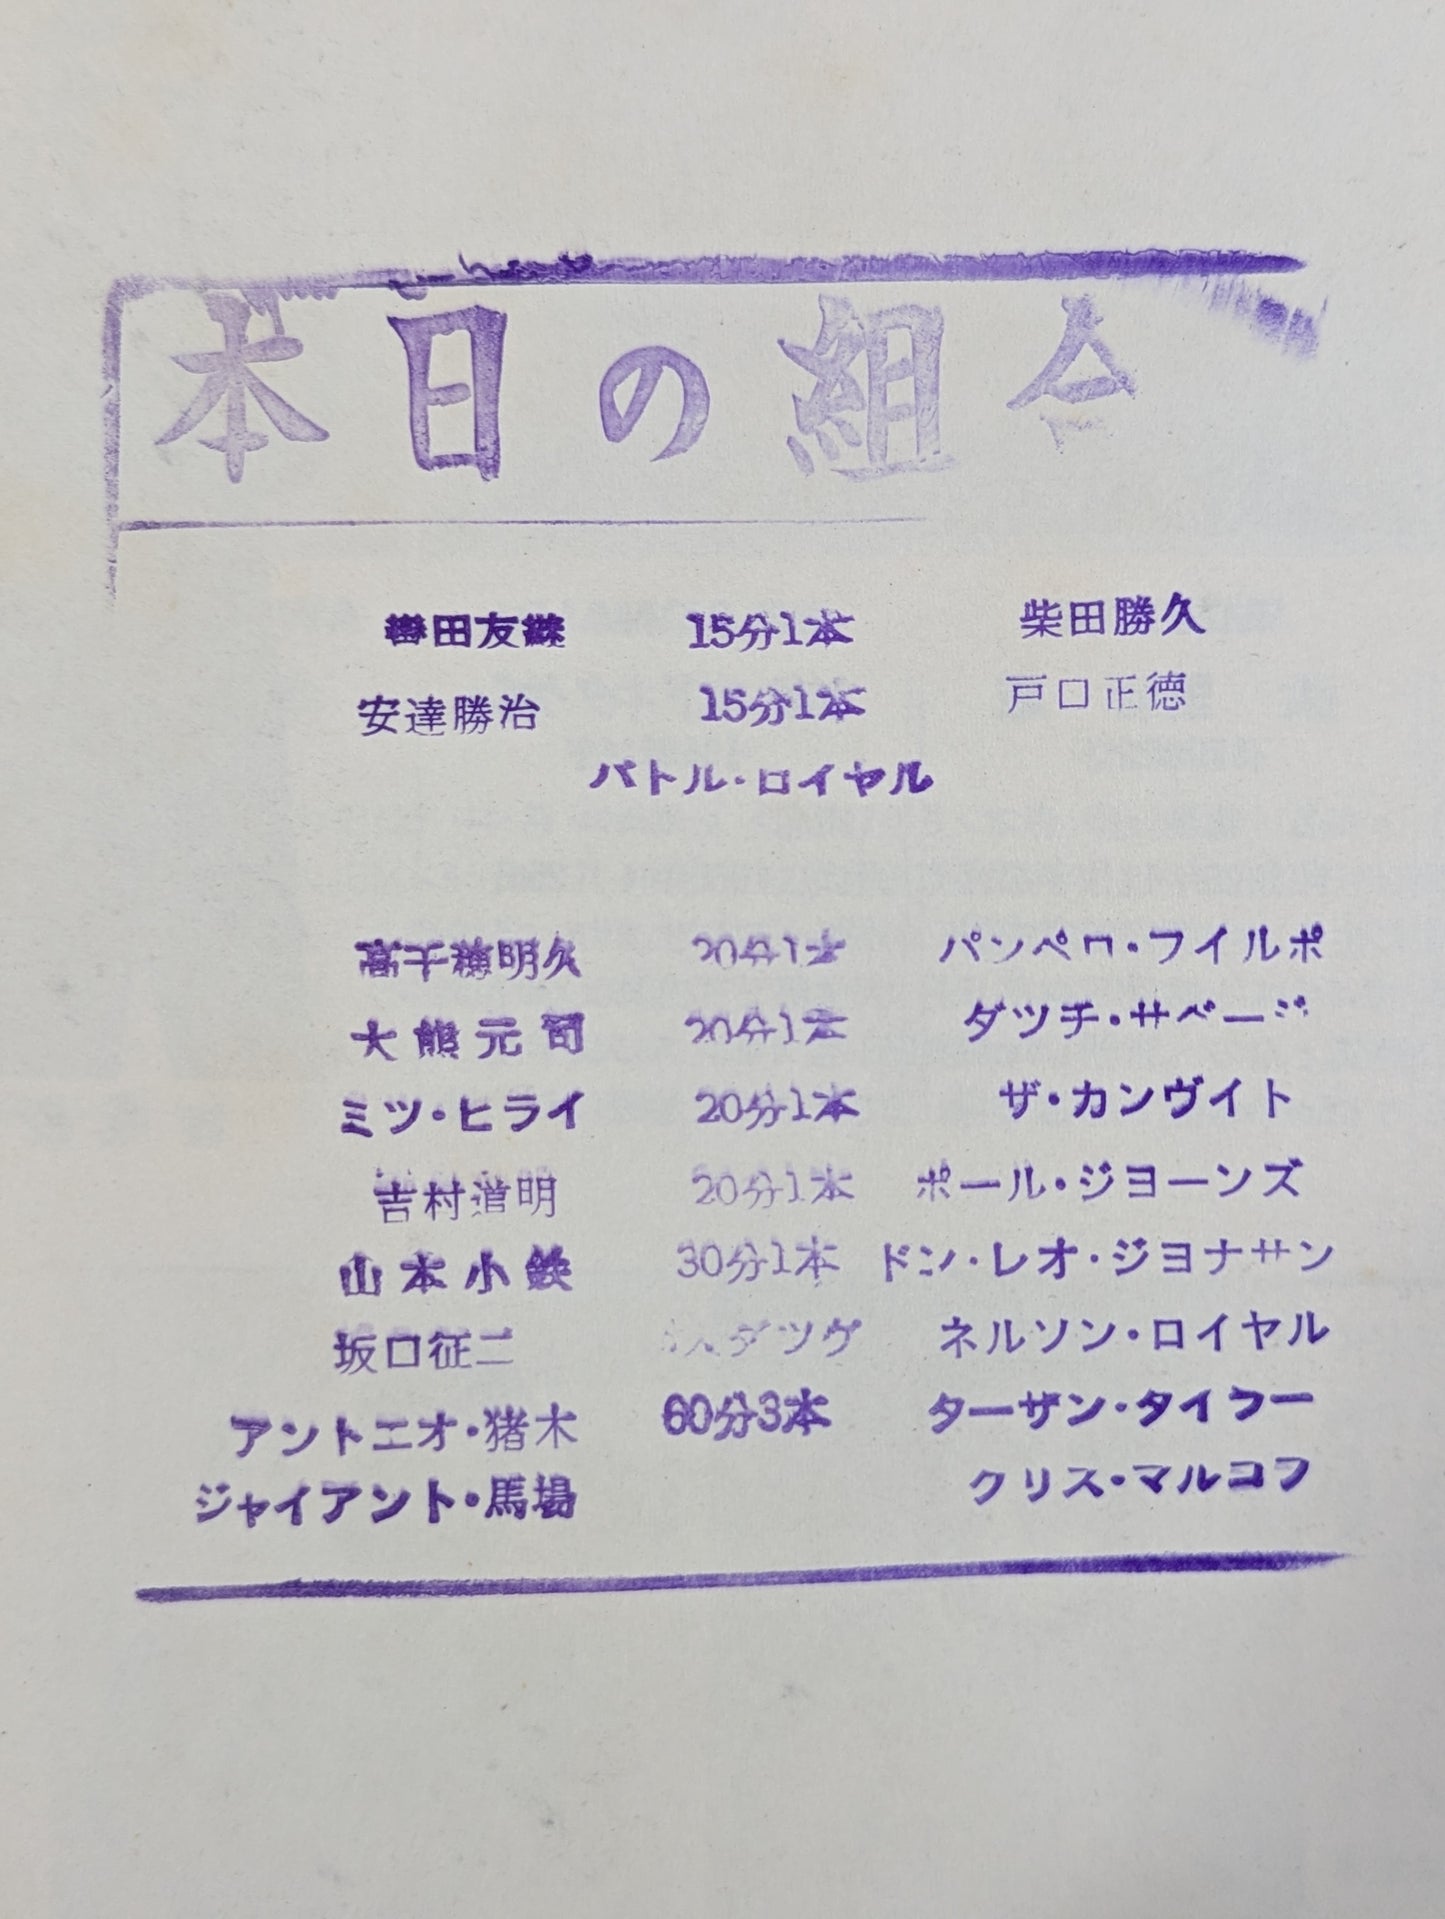 本日の組合
轡田友継 15分1本 柴田勝久
安達勝治 15分1本 戸口正徳
バトル・ロイヤル
高千穂明久 20分1本 パンペロ・フイルポ
大熊元司 20分1本 ダツチ・サベージ
ミツ・ヒライ 20分1本 ザ・カンヴイト
吉村道明 20分1本 ポール・ジヨーンズ
山本小鉄 30分1本 ドン・レオ・ジヨナサン
坂口征二 ネルソン・ロイヤル
アントニオ・猪木 60分3本 ターザン・タイラー
ジャイアント・馬場 クリス・マルコフ